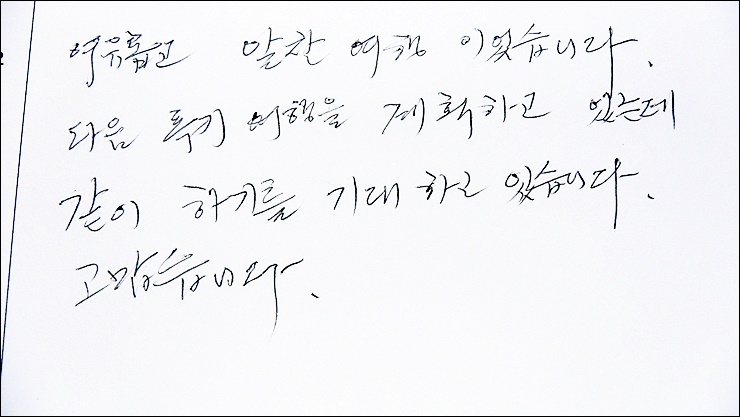 여유롭고 알찬 여행 이었습니다.
다음 튀키 여행을 계획하고 있는데
같이 하기를 기대 하고 있습니다.
고맙습니다.